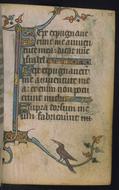 Sepe expugnaue
runt me a iuuen
tute mea dicat
israel
Sepe expugnauer
unt me a iuuentute me
a etenim non potu
erunt michi
Supra dorsum me
um fabricauerunt